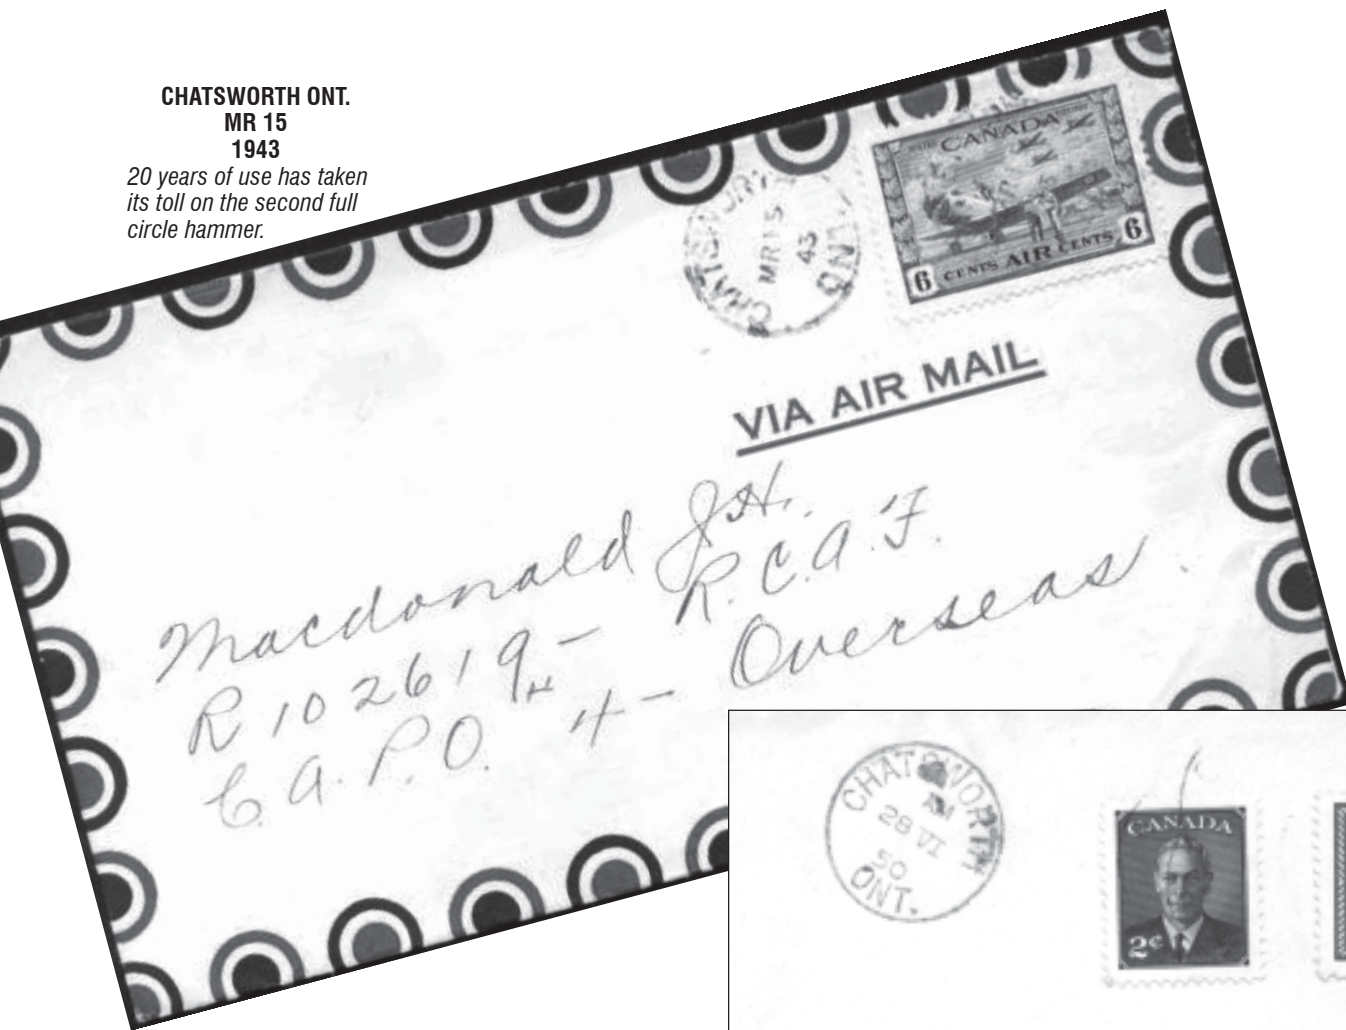 CHATSWORTH ONT.
MR 15
1943
20 years of use has taken
its toll on the second full
circle hammer.
MR 15
43
ONT.
CANADA
6 CENTS AIR CENTS 6
VIA AIR MAIL
Macdonald J.H.
R102619 - R.C.A.F.
C.A.P.O. 4 - Overseas.
CHATSWORTH
AM
28 VI
50
ONT.
CANADA
2¢